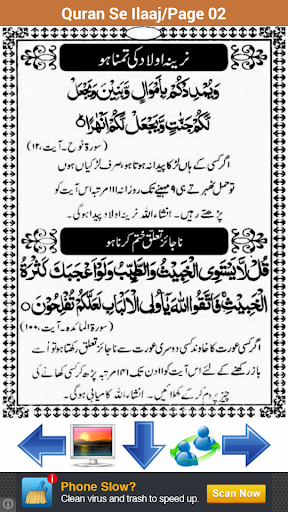 Quran Se Ilaaj/Page 02
نرینہ اولاد کی تمنا ہو
وَیُمْدِدْكُمْ بِأَمْوَالٍ وَّبَنِیْنَ وَیَجْعَلْ
لَّكُمْ جَنّٰتٍ وَّیَجْعَلْ لَّكُمْ اَنْهٰرًا
(سورۃ نوح۔ آیت،۱۲)
اگر کسی کے ہاں لڑکا پیدا نہ ہوتا ہو، صرف لڑکیاں ہوں
تو حمل ٹھہرتے ہی ۹ مہینے تک روزانہ ۱۱۱ مرتبہ اس آیت کو
پڑھتے رہیں۔ انشاء اللہ نرینہ اولاد پیدا ہوگی۔
ناجائز تعلق ختم کرنا ہو
قُلْ لَّا یَسْتَوِی الْخَبِیْثُ وَالطَّیِّبُ وَلَوْ اَعْجَبَكَ كَثْرَةُ
الْخَبِیْثِ فَاتَّقُوا اللهَ یٰۤاُولِی الْاَلْبَابِ لَعَلَّكُمْ تُفْلِحُوْنَ
(سورۃ المائدہ۔ آیت،۱۰۰)
اگر کسی عورت کا خاوند کسی دوسری عورت سے ناجائز تعلق رکھتا ہو تو اسے
باز رکھنے کے لئے اس آیت کو ۱۱ مرتبہ پڑھ کر کسی کھانے کی
چیز پر دم کر کے کھلائیں۔ انشاء اللہ کامیابی ہوگی۔
Phone Slow?
Clean virus and trash to speed up.
Scan Now